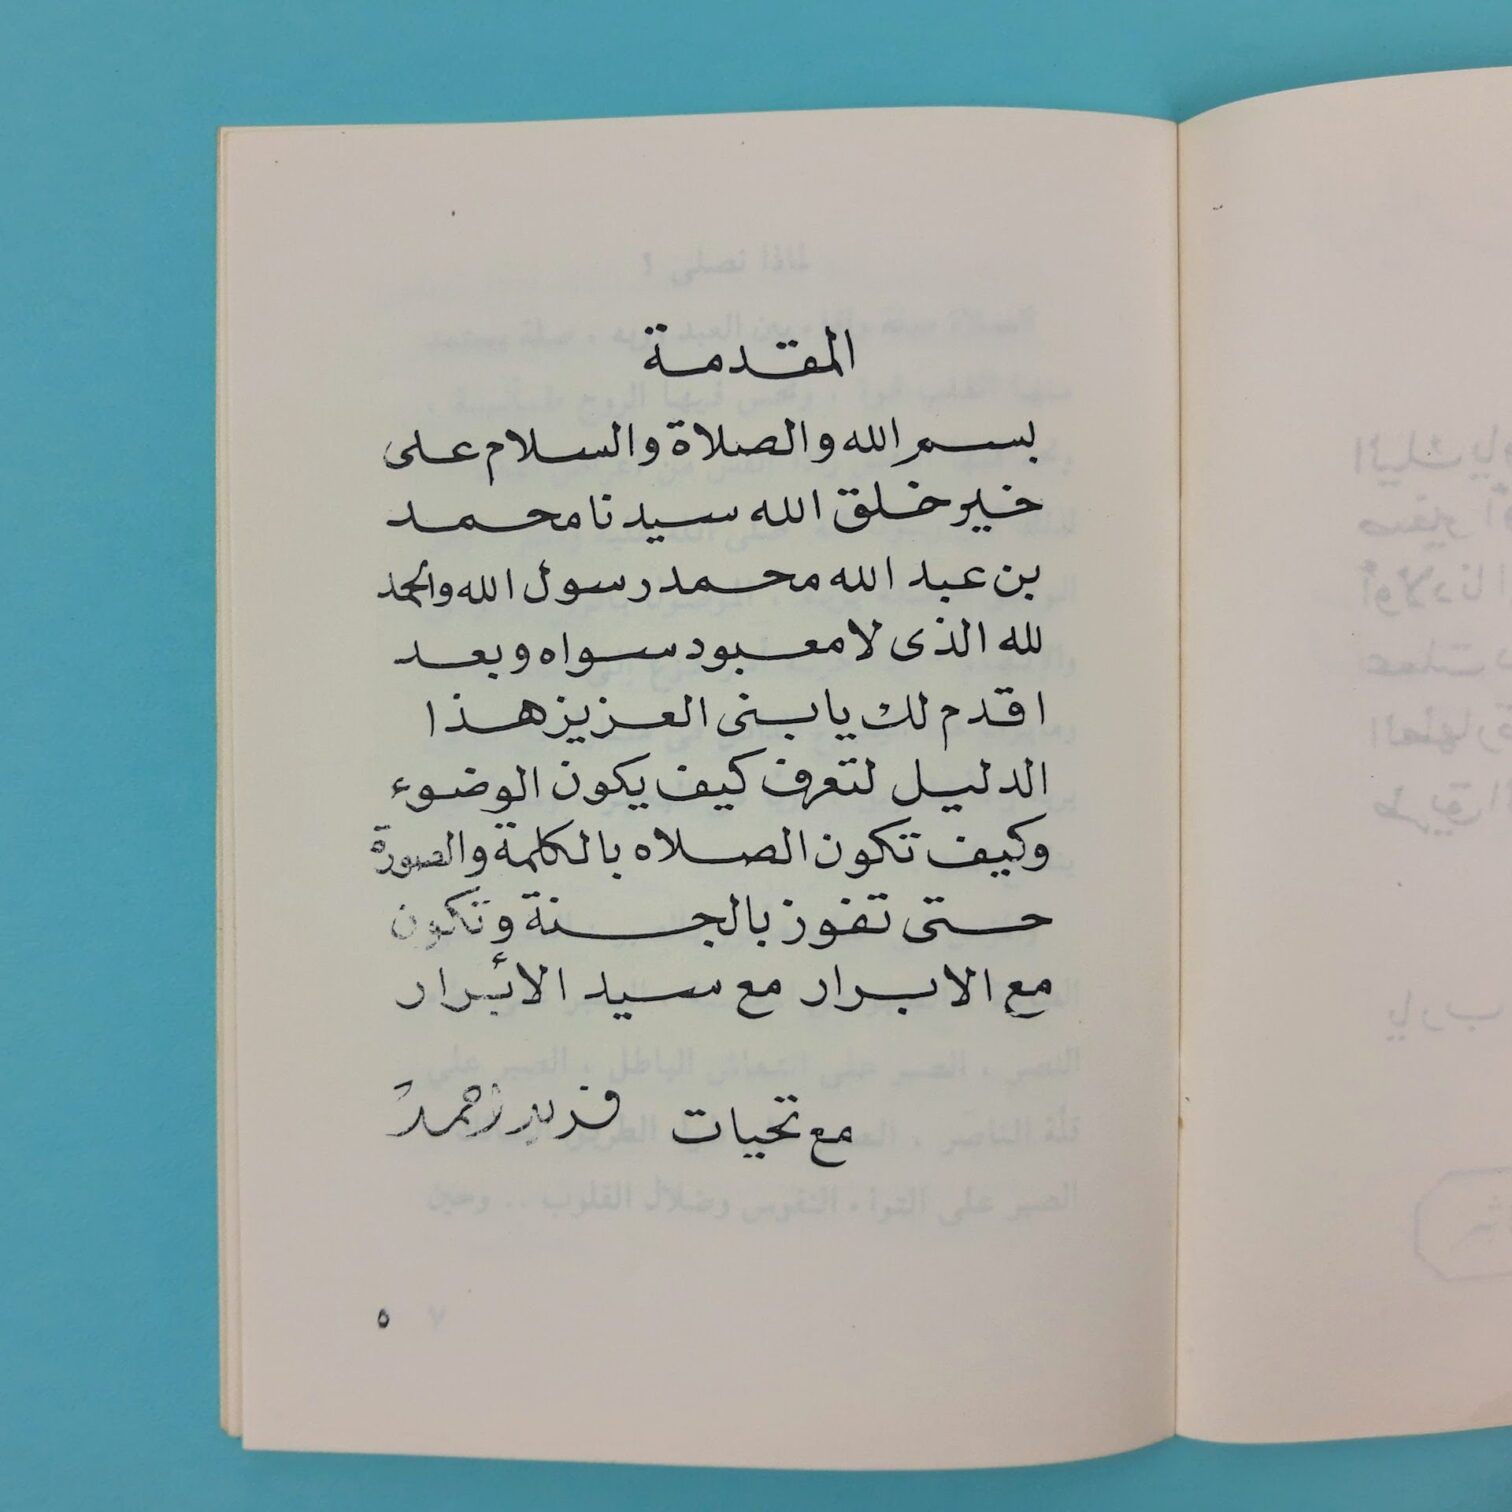 المقدمة
بسم الله والصلاة والسلام على
خير خلق الله سيدنا محمد
بن عبد الله محمد رسول الله والحمد
لله الذى لا معبود سواه وبعد
اقدم لك يا بنى العزيز هذا
الدليل لتعرف كيف يكون الوضوء
وكيف تكون الصلاه بالكلمة والصورة
حتى تفوز بالجنة وتكون
مع الابرار مع سيد الأبرار
مع تحيات فريد احمد
٥